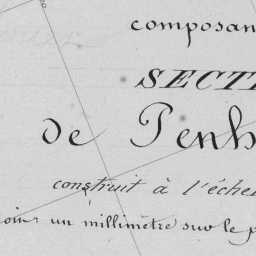 composan
SECTI
de Penh
construit à l'échel
un millimètre sur le p